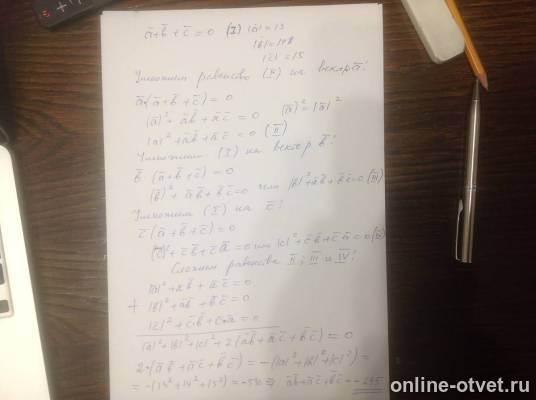 ā+b̄+c̄=0 (I) |ā|=13
|b̄|=14
|c̄|=15
Умножим равенство (I) на вектор ā!
ā·(ā+b̄+c̄)=0
(ā)²+āb̄+āc̄=0 (ā)²=|ā|²
|ā|²+āb̄+āc̄=0 (II)
Умножим (I) на вектор b̄!
b̄·(ā+b̄+c̄)=0
(b̄)²+āb̄+b̄c̄=0 или |b̄|²+āb̄+b̄c̄=0 (III)
Умножим (I) на c̄!
c̄(ā+b̄+c̄)=0
(c̄)²+c̄b̄+c̄ā=0 или |c̄|²+c̄b̄+c̄ā=0 (IV)
Сложим равенства II, III и IV!
|ā|²+āb̄+āc̄=0
+ |b̄|²+āb̄+b̄c̄=0
|c̄|²+c̄b̄+c̄ā=0
|ā|²+|b̄|²+|c̄|²+2(āb̄+āc̄+b̄c̄)=0
2·(āb̄+āc̄+b̄c̄)=-(|ā|²+|b̄|²+|c̄|²)=
=-(13²+14²+15²)=-590 ⇒ āb̄+āc̄+b̄c̄=-295
online-otvet.ru